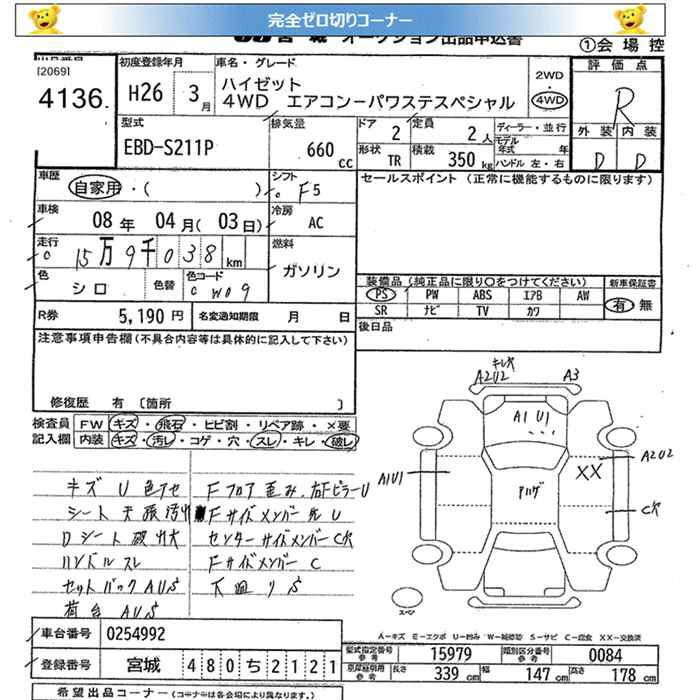 完全ゼロ切りコーナー
宮城 オークション出品申込書
①会場控
出品番号
[2069]
4136.
初度登録年月
H26 3月
車名・グレード
ハイゼット
4WD エアコンーパワステスペシャル
2WD
・
4WD
評価点
R
外装 内装
D D
型式
EBD-S211P
排気量
660 cc
ドア 2
定員 2人
形状 TR
積載 350 kg
ディーラー・並行
モデル年式 年
ハンドル 左・右
車歴
自家用・( )
シフト
F5
車検
08年 04月(03日)
冷房
AC
走行
15万9千038km
燃料
ガソリン
色
シロ
色替
色コード
W09
R券 5,190円
名変通知期限 月 日
セールスポイント(正常に機能するものに限ります)
装備品(純正品に限り○をつけてください)
PS PW ABS エアB AW
SR ナビ TV カワ
新車保証書
有 無
後日品
注意事項申告欄(不具合内容等は具体的に記入して下さい)
修復歴 有 [箇所 ]
検査員記入欄
FW キズ・飛石・ヒビ割・リペア跡・×要
内装 キズ・汚レ・コゲ・穴・スレ・キレ・破レ
キズ U 色アセ
シート 天張汚れ
Dシート 破れ大
ハンドル スレ
セットバック AUS
荷台 AUS
Fフロア歪み、右FピラーU
Fサイドメンバー先 U
センターサイドメンバー C穴
Fサイドメンバー C
下廻り S
キレ穴
A2U2
A3
A1U1
A1U1
A2U2
XX
C穴
アハゲ
スペア
A―キズ E―エクボ U―凹み W―補修跡 S―サビ C―腐食 XX―交換済
車台番号 0254992
登録番号 宮城 480 ち 2121
型式指定番号 参考 15979
類別区分番号 参考 0084
参考 長さ 339 cm 幅 147 cm 高さ 178 cm
希望出品コーナー(コーナーは各会場により異なります。)